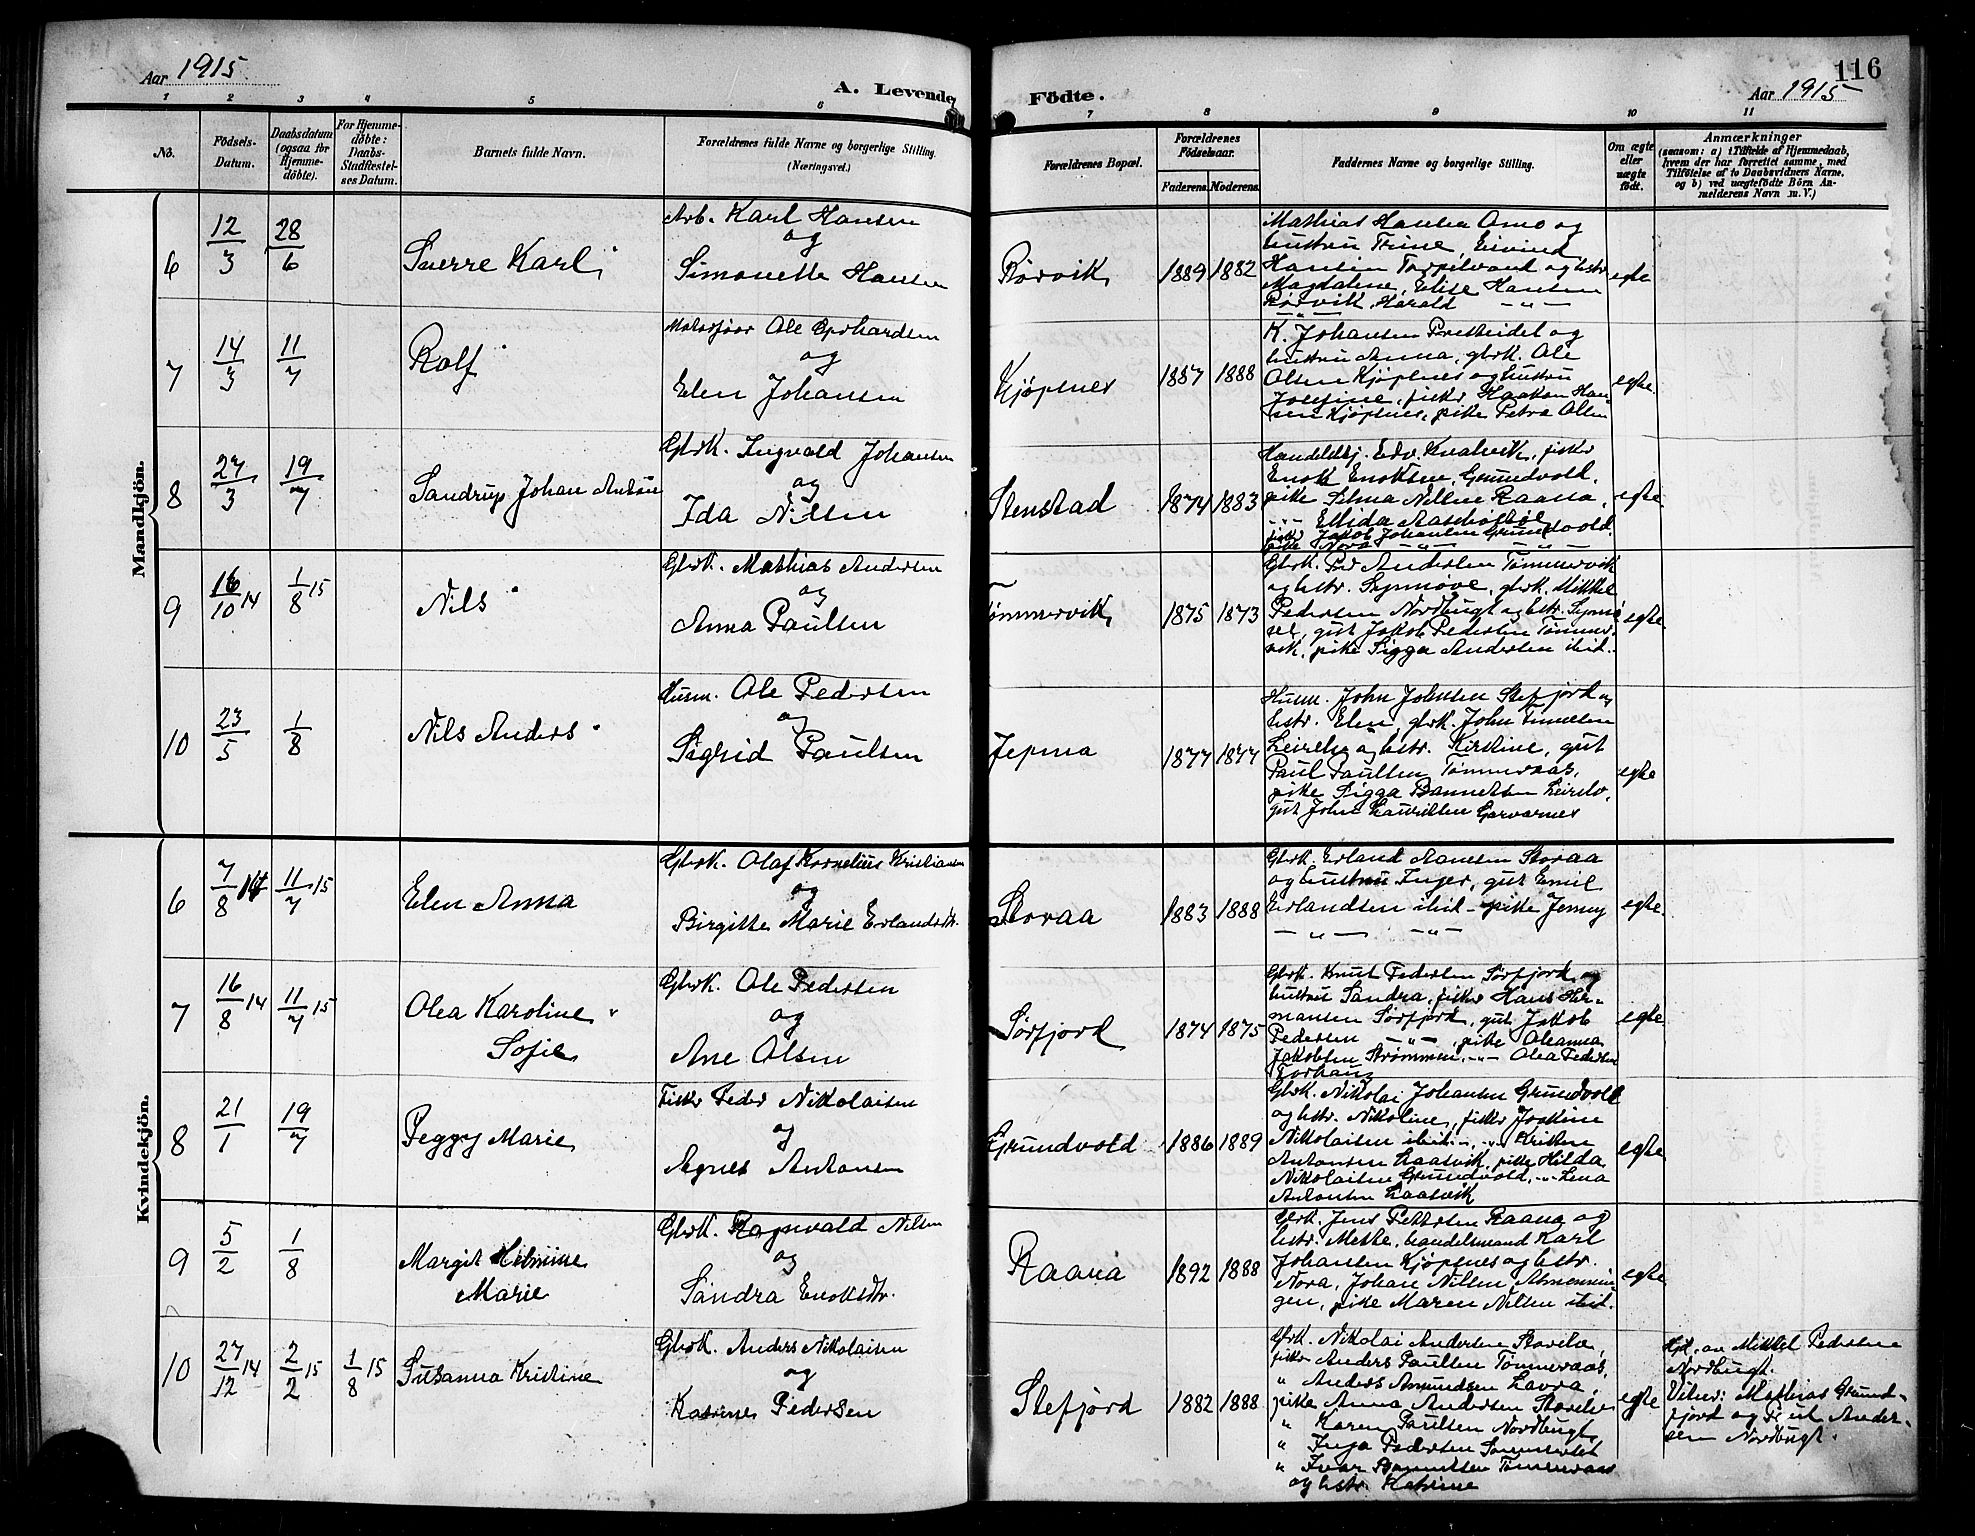 Aar 1915.
A. Levende
Födte.
Aar 1915
116
1 2 3 4 5 6 7 8 9 10 11
No.
Födsels-
Datum.
Daabsdatum
(ogsaa for
Hjemme-
döbte).
For Hjemme-
döbte:
Daabs-
Stadfæstel-
ses Datum.
Barnets fulde Navn.
Forældrenes fulde Navne og borgerlige Stilling.
(Næringsvei.)
Forældrenes Bopæl.
Forældrenes
Födselsaar.
Faderens. Moderens.
Faddernes Navne og borgerlige Stilling.
Om ægte
eller
uægte
födt.
Anmærkninger
(saasom: a) i Tilfælde af Hjemmedaab,
hvem der har forrettet samme, med
Tilföielse af to Daabsvidners Navne,
og b) ved uægtefödte Börn An-
melderens Navn m. V.)
Mandkjön.
6
12/3
28/6
Sverre Karl
Arb. Karl Hansen
og
Simonette Hansen
Rørvik
1889 1882
Mathias Hansen Omo og
hustru Trine, Eivind
Hansen Torpilvand og hstr
Magdalene, Elise Hansen
Rørvik, Harald — " —
egte
7
14/3
11/7
Rolf
Ole Gerhardsen
og
Elen Johansen
Kjøpsnes
1887 1888
K. Johansen Presteidet og
hustru Anna, gbrk. Ole
Olsen Kjøpsnes og hustru
Josefine, fisker Haakon Han-
sen Kjøpsnes, pike Petra Olsen
egte.
8
27/3
19/7
Sandrup Johan Antön
Gbrk. Ingvald Johansen
og
Ida Nilsen
Stenstad
1874 1883
Handelsbj. Edv. Kvalvik, fisker
Enok Enoksen, Grundvold,
pike Selma Nilsen Raana,
— " — Ellida
fisker Jakob Johansen Grundvold.
pike Nora — " — — " —
egte
9
16/10 14
1/8 15
Nils
Gbrk. Mathias Andersen
og
Anna Paulsen
Tømmervik
1875 1873
Gbrk. Per Andersen Tømmervik
og hstr. Synnøve, gbrk. Mikkel
Pedersen Nordbugt og hstr. Synnø-
ve, gut Jakob Pedersen Tømmer-
vik, pike Sigga Andersen ibid.
egte
10
23/5
1/8
Nils Anders
Husm. Ole Pedersen
og
Sigrid Paulsen
Jepma
1877 1877
Husm. John Johnsen Stefjord og
hstr. Elen, gbrk. John
og hstr. Kirstine, gut
Paul Paulsen Tømmeraas,
pike Sigga
gut John Lauritsen
egte
Kvindekjön.
6
7/8 14
11/7 15
Elen Anna
Gbrk. Olaf Kornelius Kristiansen
og
Birgitte Marie Erlandsdtr.
Storaa
1883 1888
Gbrk. Erland Storaa
og hustru Inger, gut Emil
Erlandsen ibid — pike Jenny
— " — — " —
egte.
7
16/8 14
11/7 15
Olea Karoline
Sofie
Gbrk. Ole Pedersen
og
Ane Olsen
Sørfjord
1874 1875
Gbrk. Knut Pedersen Sørfjord og
hustru Sandra, fisker Hans Her-
mansen Sørfjord, gut Jakob
Pedersen — " —, pike Oleanna
Jakobsen Strømmen, — " — Olea Pedersen
egte
8
21/1
19/7
Peggy Marie
Fisker Peder Nikolaisen
og
Agnes Antonsen
Grundvold
1886 1889
Gbrk. Nikolai Johansen Grundvold
og hstr. Nikoline, fisker
Nikolaisen ibid —, — " — Kristen
Antonsen Laasvik, pike Hilda
Nikolaisen Grundvold, — " — Lena
Antonsen Laasvik
egte
9
5/2
1/8
Margit
Marie
Gbrk. Ragnvald Nilsen
og
Sandra Enoksdtr.
Raana
1892 1888
Gbrk. Jens Pettersen Raana og
hstr. Mette, handelsmand Karl
Johansen Kjøpsnes og hstr.
Nora, Johan Nilsen Almennin-
gen, pike Maren Nilsen ibid.
egte
10
27/12 14
2/2 15
1/8 15
Susanna Kristine
Gbrk. Anders Nikolaisen
og
Katrine Pedersen
Stefjord
1882 1888
Gbrk. Nikolai Andersen
fisker Anders Paulsen Tømmeraas,
" Anders Amundsen Lavra,
pike Anna Andersen
" Karen Paulsen Nordbugt,
" Inga Pedersen
" Ivar Tømmeraas
og hstr. Katrine
egte
Hjd. av Mikkel Pedersen
Nordbugt.
Vitner: Mathias Grund-
fjord og Paul Ander-
sen Nordbugt.